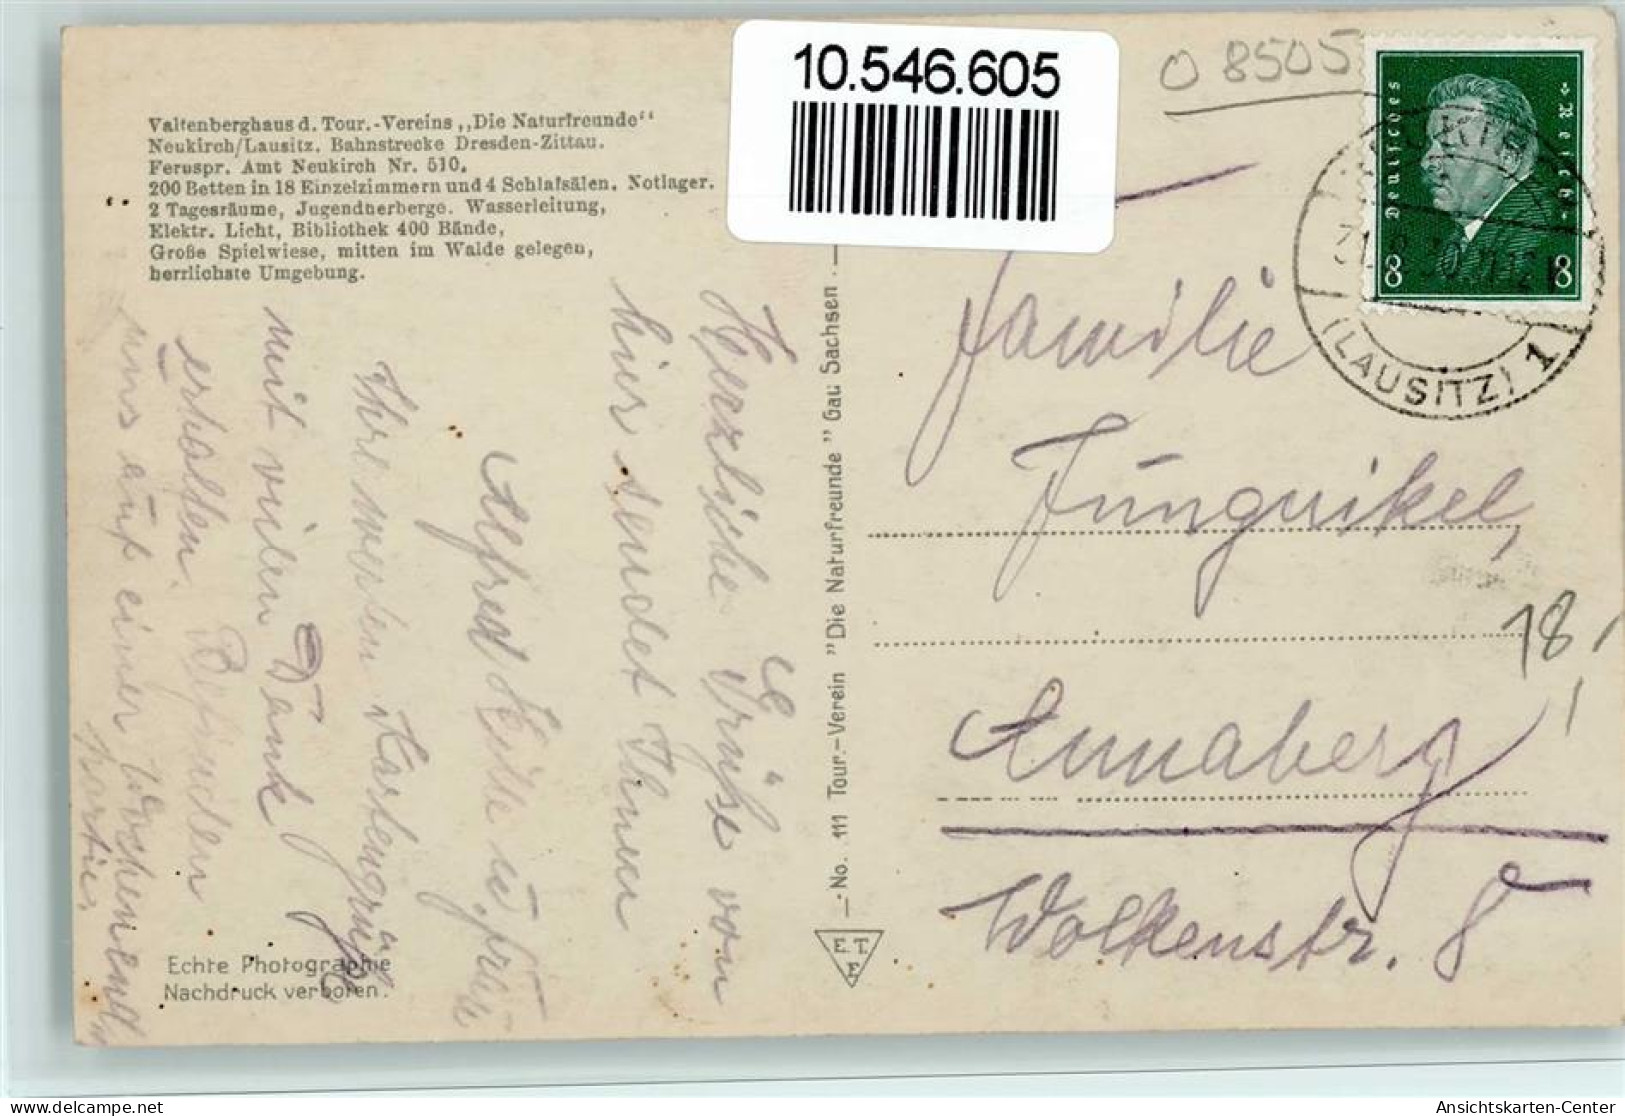 10.546.605
O 8505
Valtenberghaus d. Tour.-Vereins „Die Naturfreunde“
Neukirch/Lausitz. Bahnstrecke Dresden-Zittau.
Fernspr. Amt Neukirch Nr. 510.
200 Betten in 18 Einzelzimmern und 4 Schlafsälen. Notlager.
2 Tagesräume, Jugendherberge. Wasserleitung,
Elektr. Licht, Bibliothek 400 Bände,
Große Spielwiese, mitten im Walde gelegen,
herrlichste Umgebung.
Herzliche Grüße von
hier sendet Ihnen
Alfred u. Frau
Ihre werten Kartengrüße
mit vielen Dank
erhalten. Befinden
uns auf einer Wochenend
partie.
Echte Photographie
Nachdruck verboten.
No. 111 Tour.-Verein "Die Naturfreunde" Gau Sachsen
E.T.
F
Deutsches Reich
8 8
(LAUSITZ) 1
Familie
Jungnikel,
Annaberg
Wolkenstr. 8
18,
Ansichtskarten-Center
www.delcampe.net